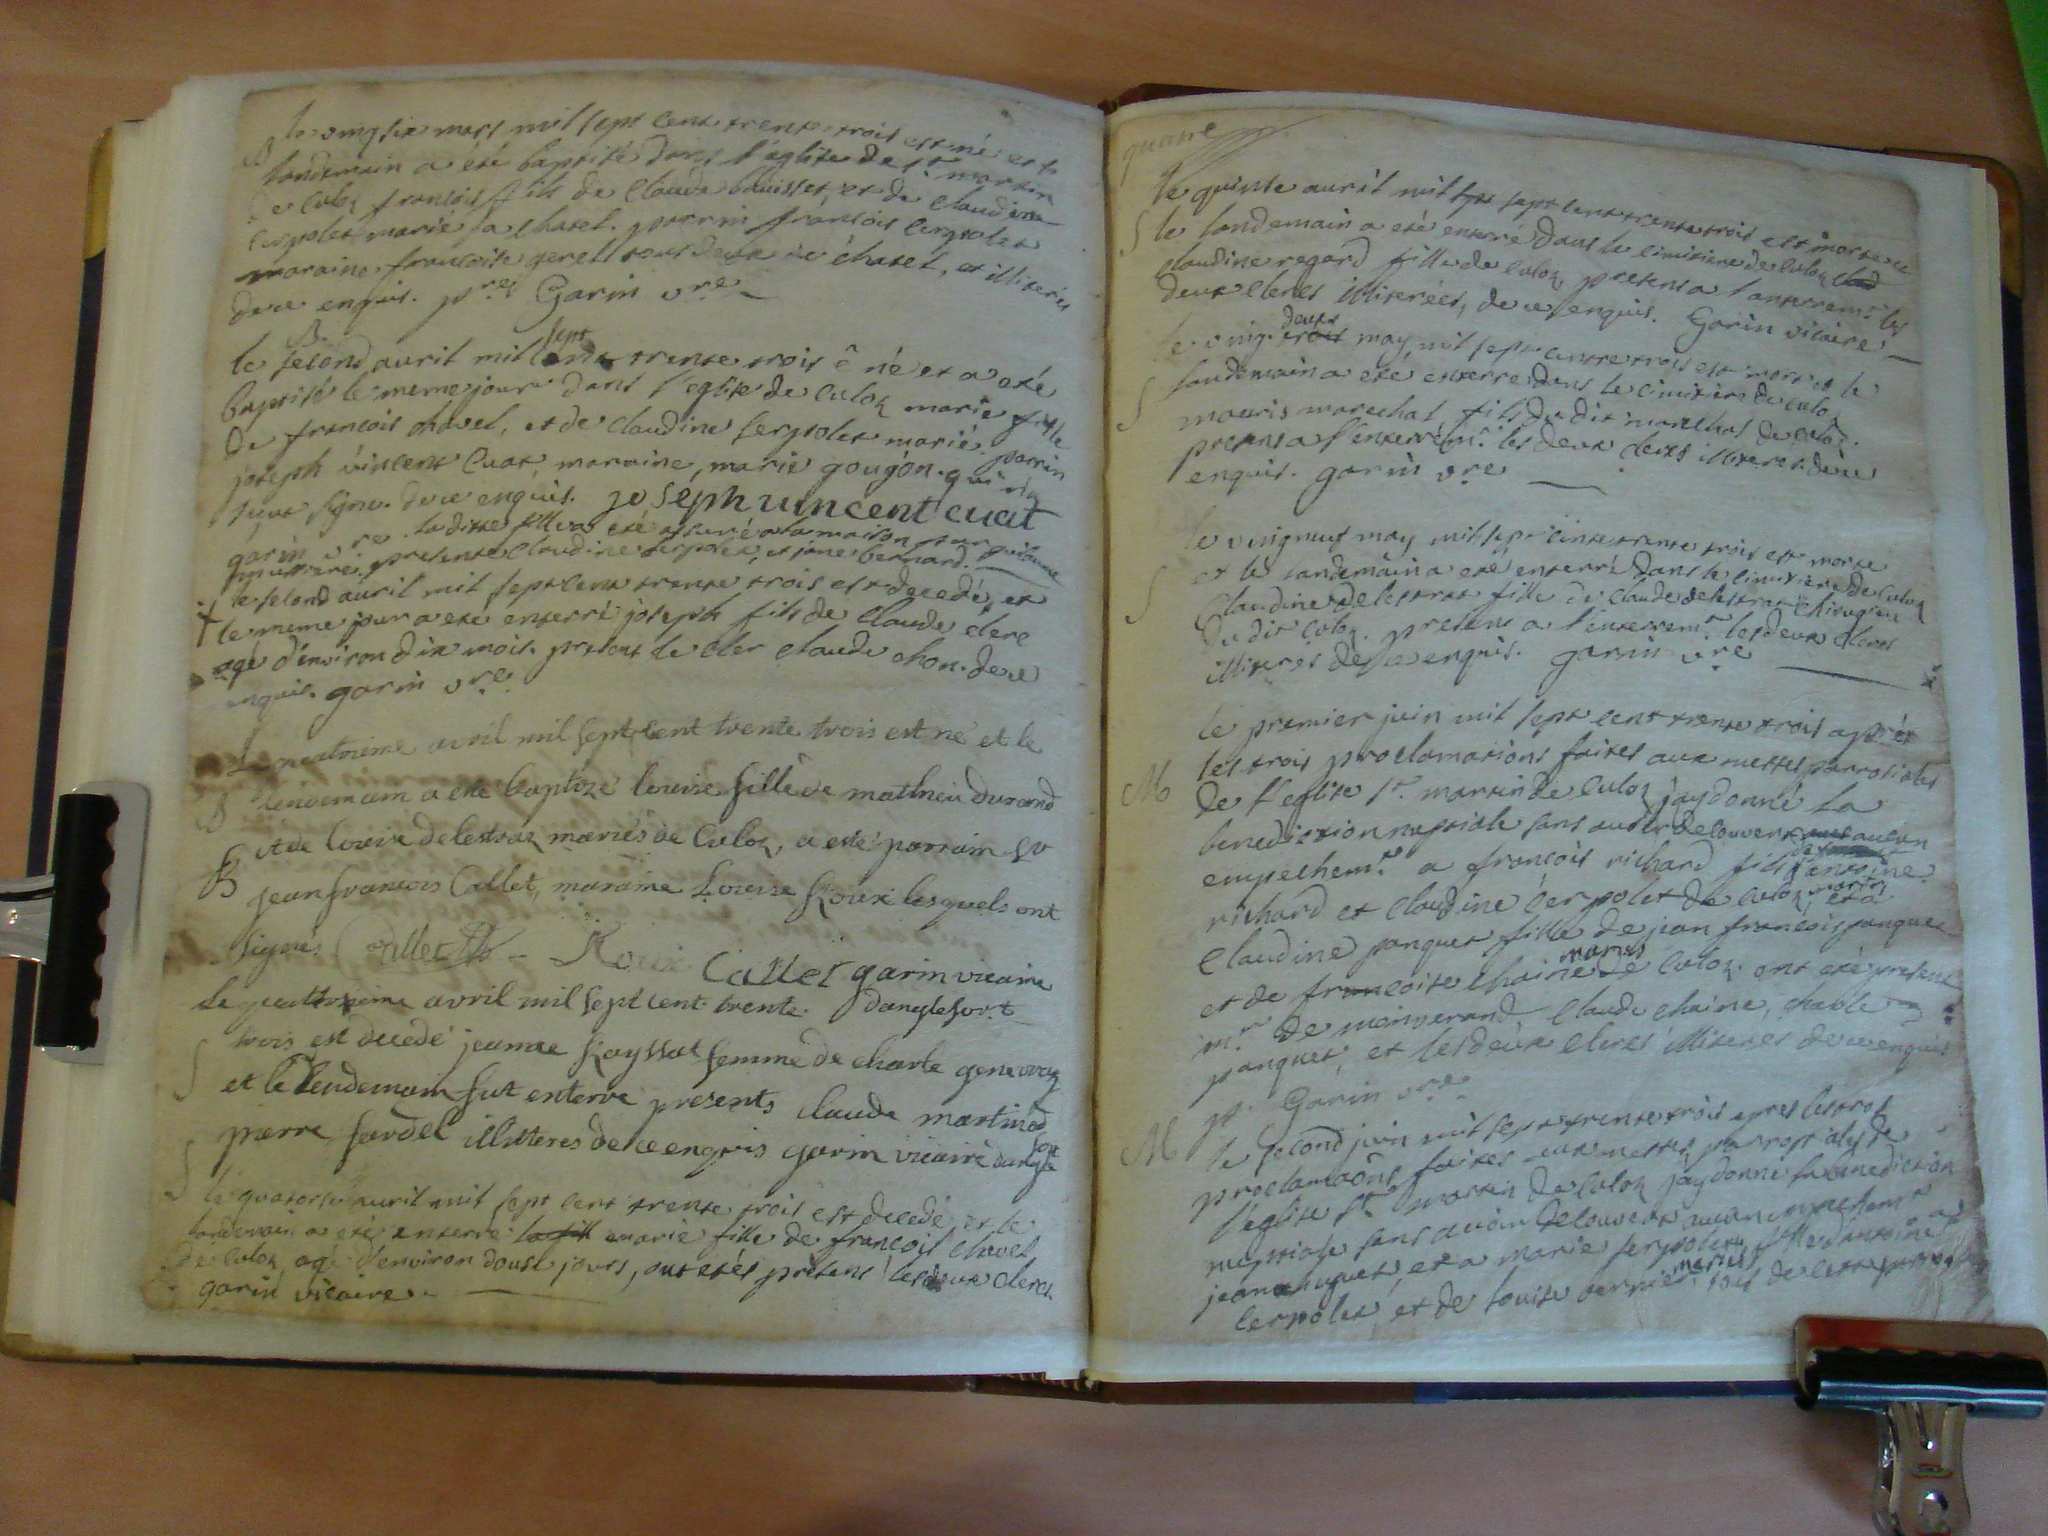 B le vingsix mars mil sept cent trente trois est né et le
landemain a été baptisé dans l'eglise de st martin
de Culoz francois fils de Claude bouisset, et de Claudine
serpolet marié a chatel. parrin francois serpolet
maraine francoise gerel tous deux de chatel, et illiterés
de ce enquis. pres Garin vre
B.
le second avril mil sept cent trente trois ê né et a eté
baptisé le meme jour dans l'eglise de Culoz marie fille
de francois chavel, et de Claudine serpolet marié. parrin
joseph vincent Cuat, maraine, marie goujon. qui n'a
sceut signe. de ce enquis. joseph vincent cuat
garin vre. la ditte fille a eté assuré a la maison par
presente Claudine serpolet, et jane bernard.
le second avril mil sept cent trente trois est decedé, et
le meme jour a eté enterré joseph fils de Claude clerc
agé d'environ dix mois. present le cler Claude chon. de ce
enquis. garin vre
Le neufvieme avril mil sept cent trente trois est né et le
B lendemain a ete baptize louise fille de mathieu durand
et de louise delestraz mariés de Culoz, a esté parrain sr
B jean francois Callet, maraine Louise Roux lesquels ont
signés Callet Roux Callet garin vicaire
d'anglefort
Le quatrieme avril mil sept cent trente
trois est decedé jeanne Rayssat femme de charle genevray
S et le lendemain fut enterre presents Claude martinod
pierre sardel illitteres de ce enquis garin vicaire d'anglefort
S le quatorse avril mil sept cent trente trois est decedé, et le
landemain a eté enterré la fill marie fille de francois chavel
de Culoz agé d'environ douse jours, ont etés presens les deux clercs
garin vicaire
quatre
le quinse avril mil sept cent trente trois est morte et
S le landemain a eté enterré dans le cimitiere de Culoz
Claudine regard fille de Culoz presens a l'anterremt les
deux clercs illiterées, de ce enquis. Garin vicaire
le ving trois deux may mil sept cent trente trois est mort et le
S landemain a eté enterré dans le cimitiere de Culoz
mauris marechal fils du dit marechal de Culoz.
presens a l'enterremt. les deux clercs illiteres. de ce
enquis. garin vre
le vingneuf may mil sept cent trente trois est morte
et le landemain a eté enterré dans le cimitiere de Culoz
S Claudine delestrat fille de Claude delestrat chirugien
du dit Culoz. presens a l'enterremt. les deux clercs
illiterés de ce enquis. garin vre
le premier juin mil sept cent trente trois aprés
les trois proclamations faites aux messes parrosiales
M de l'eglise st. martin de Culoz j'ay donné la
benediction nuptiale sans avoir decouvert aucun
empechemt. a francois richard fils d'antoine
richard et Claudine serpolet de Culoz mariés, et a
Claudine panquet fille de jean francois panquet
et de francoise chaine mariés de Culoz. ont eté present
mr. de monverand Claude chaine, charle
panquet, et les deux clercs illiteres de ce enquis
pt. Garin vre.
M le second juin mil sept trente trois apres les trois
proclamaôns faites aux messes parrossiales de
l'eglise st. martin de Culoz j'ay donné la benediction
nuptiale sans avoir decouvert aucun empechemt a
jean huguet, et a marie serpolet fille d'antoine
serpolet et de louise bernier mariés tous de cette parroisse